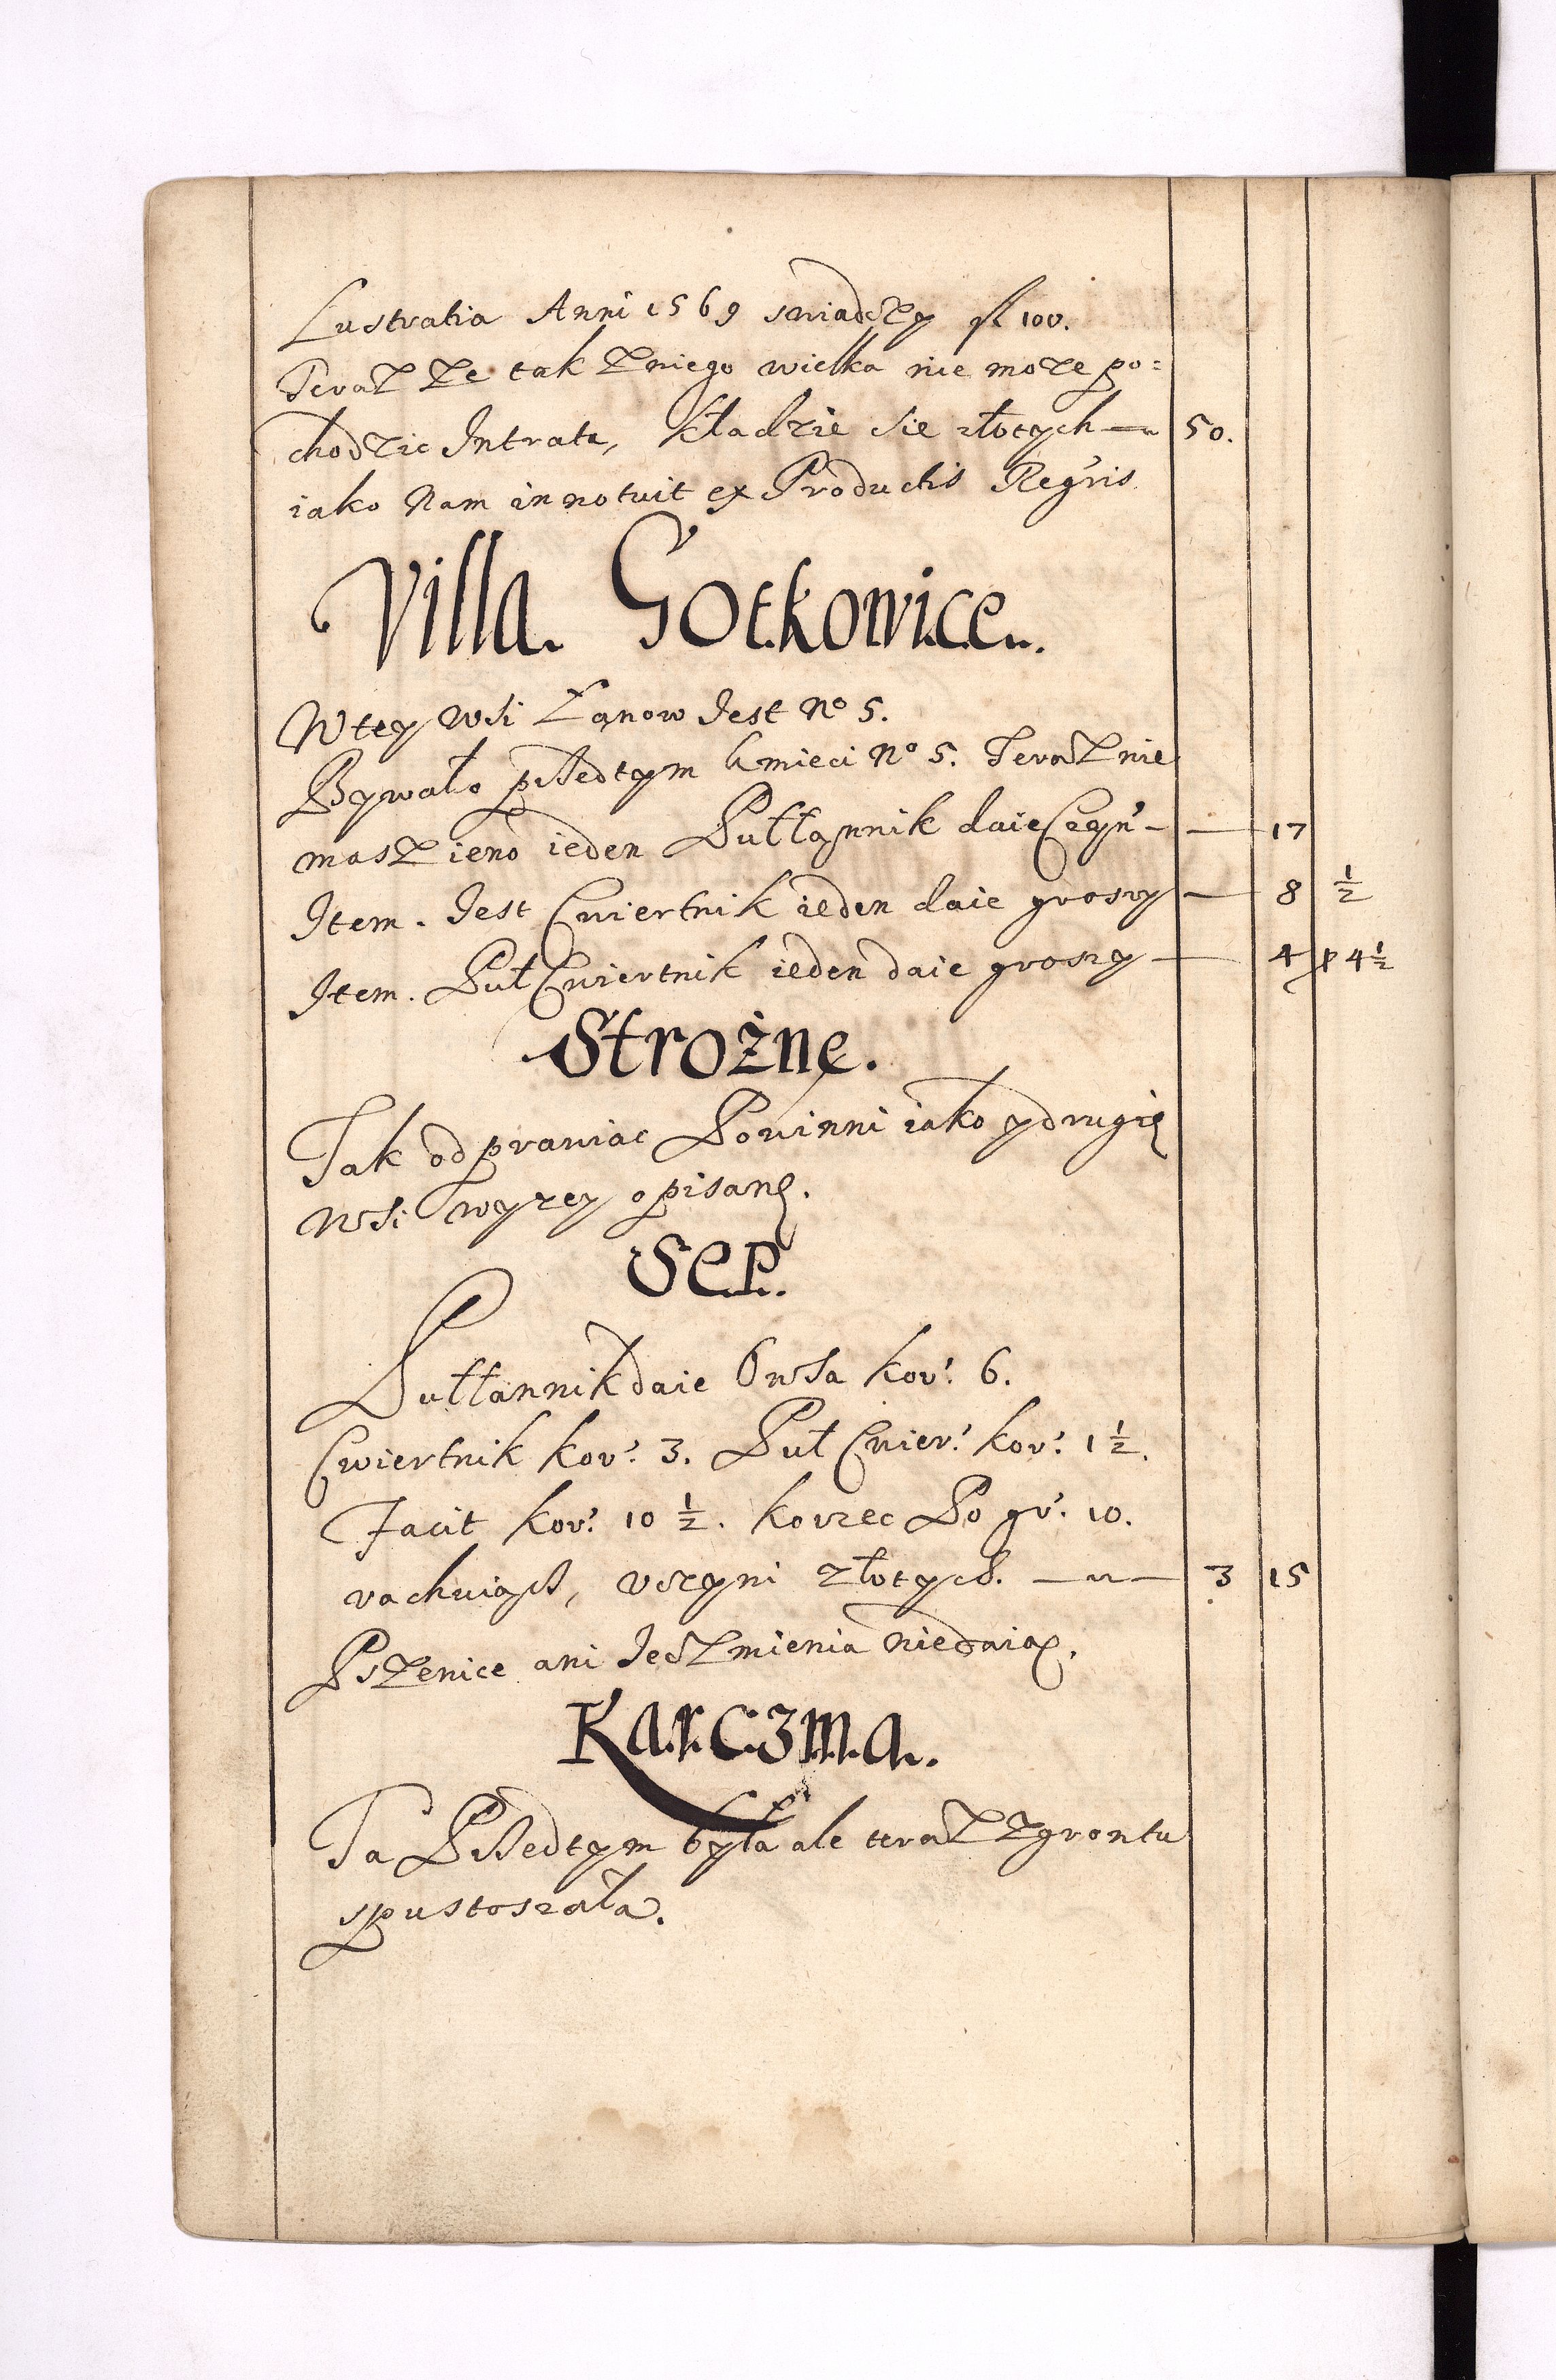 Lustratia Anni 1569 swiadczy fl 100.
Teraz ze tak zniego wielka nie moze po=
chodzic Intrata, kładzie sie złotych — 50.
iako Nam innotuit ex Productis Reg'ris
Villa. Gotkowice.
W tey wsi Łanow Jest No 5.
Bywało pſſedtym kmieci No 5. Teraz nie
masz ieno ieden Pułłannik daie — 17
Item. Jest Cwiertnik ieden daie groszy — 8 ½
Item. Puł Cwiertnik ieden daie groszy — 4 p 4½
Strożne.
Tak odprawiac Powinni iako y drugię
wsi wyzey opisanę.
SEP.
Pułłannik daie Owsa kor: 6.
Cwiertnik kor: 3. Puł Cwier: kor: 1 ½.
Facit kor: 10 ½. korzec Po gr: 10.
rachuiąc, vczyni złotych. — 3 15
Pszenice ani Jeczmienia niedaią.
Karczma.
Ta Pſſedtym była ale teraz zgrontu
spustoszała.